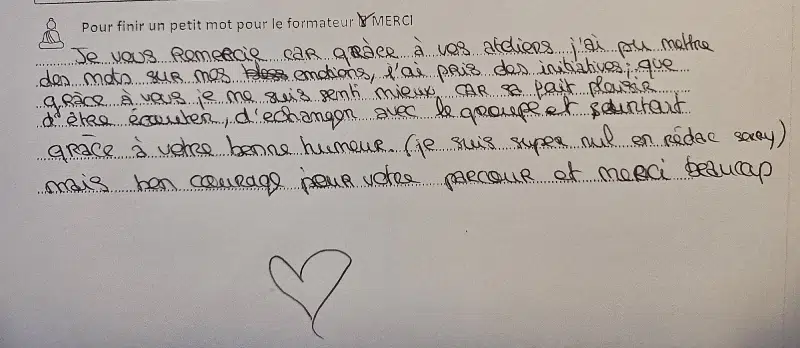 Pour finir un petit mot pour le formateur MERCI
Je vous Remercie CAR grâce à vos ateliers j'ai pu mettre
des mots sur mes emotions, j'ai pris des initiatives, que
grâce à vous je me suis senti mieux, CAR sa fait plaisir
d'être écouter, d'echanger avec le groupe et surtout
grâce à votre bonne humeur. (je suis super nul en rédac sorry)
mais bon courage pour votre parcour et merci beaucoup